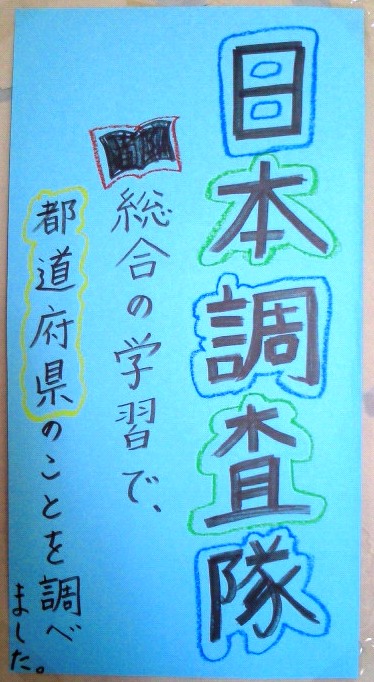 日本調査隊
総合の学習で、
都道府県のことを調べ
ました。